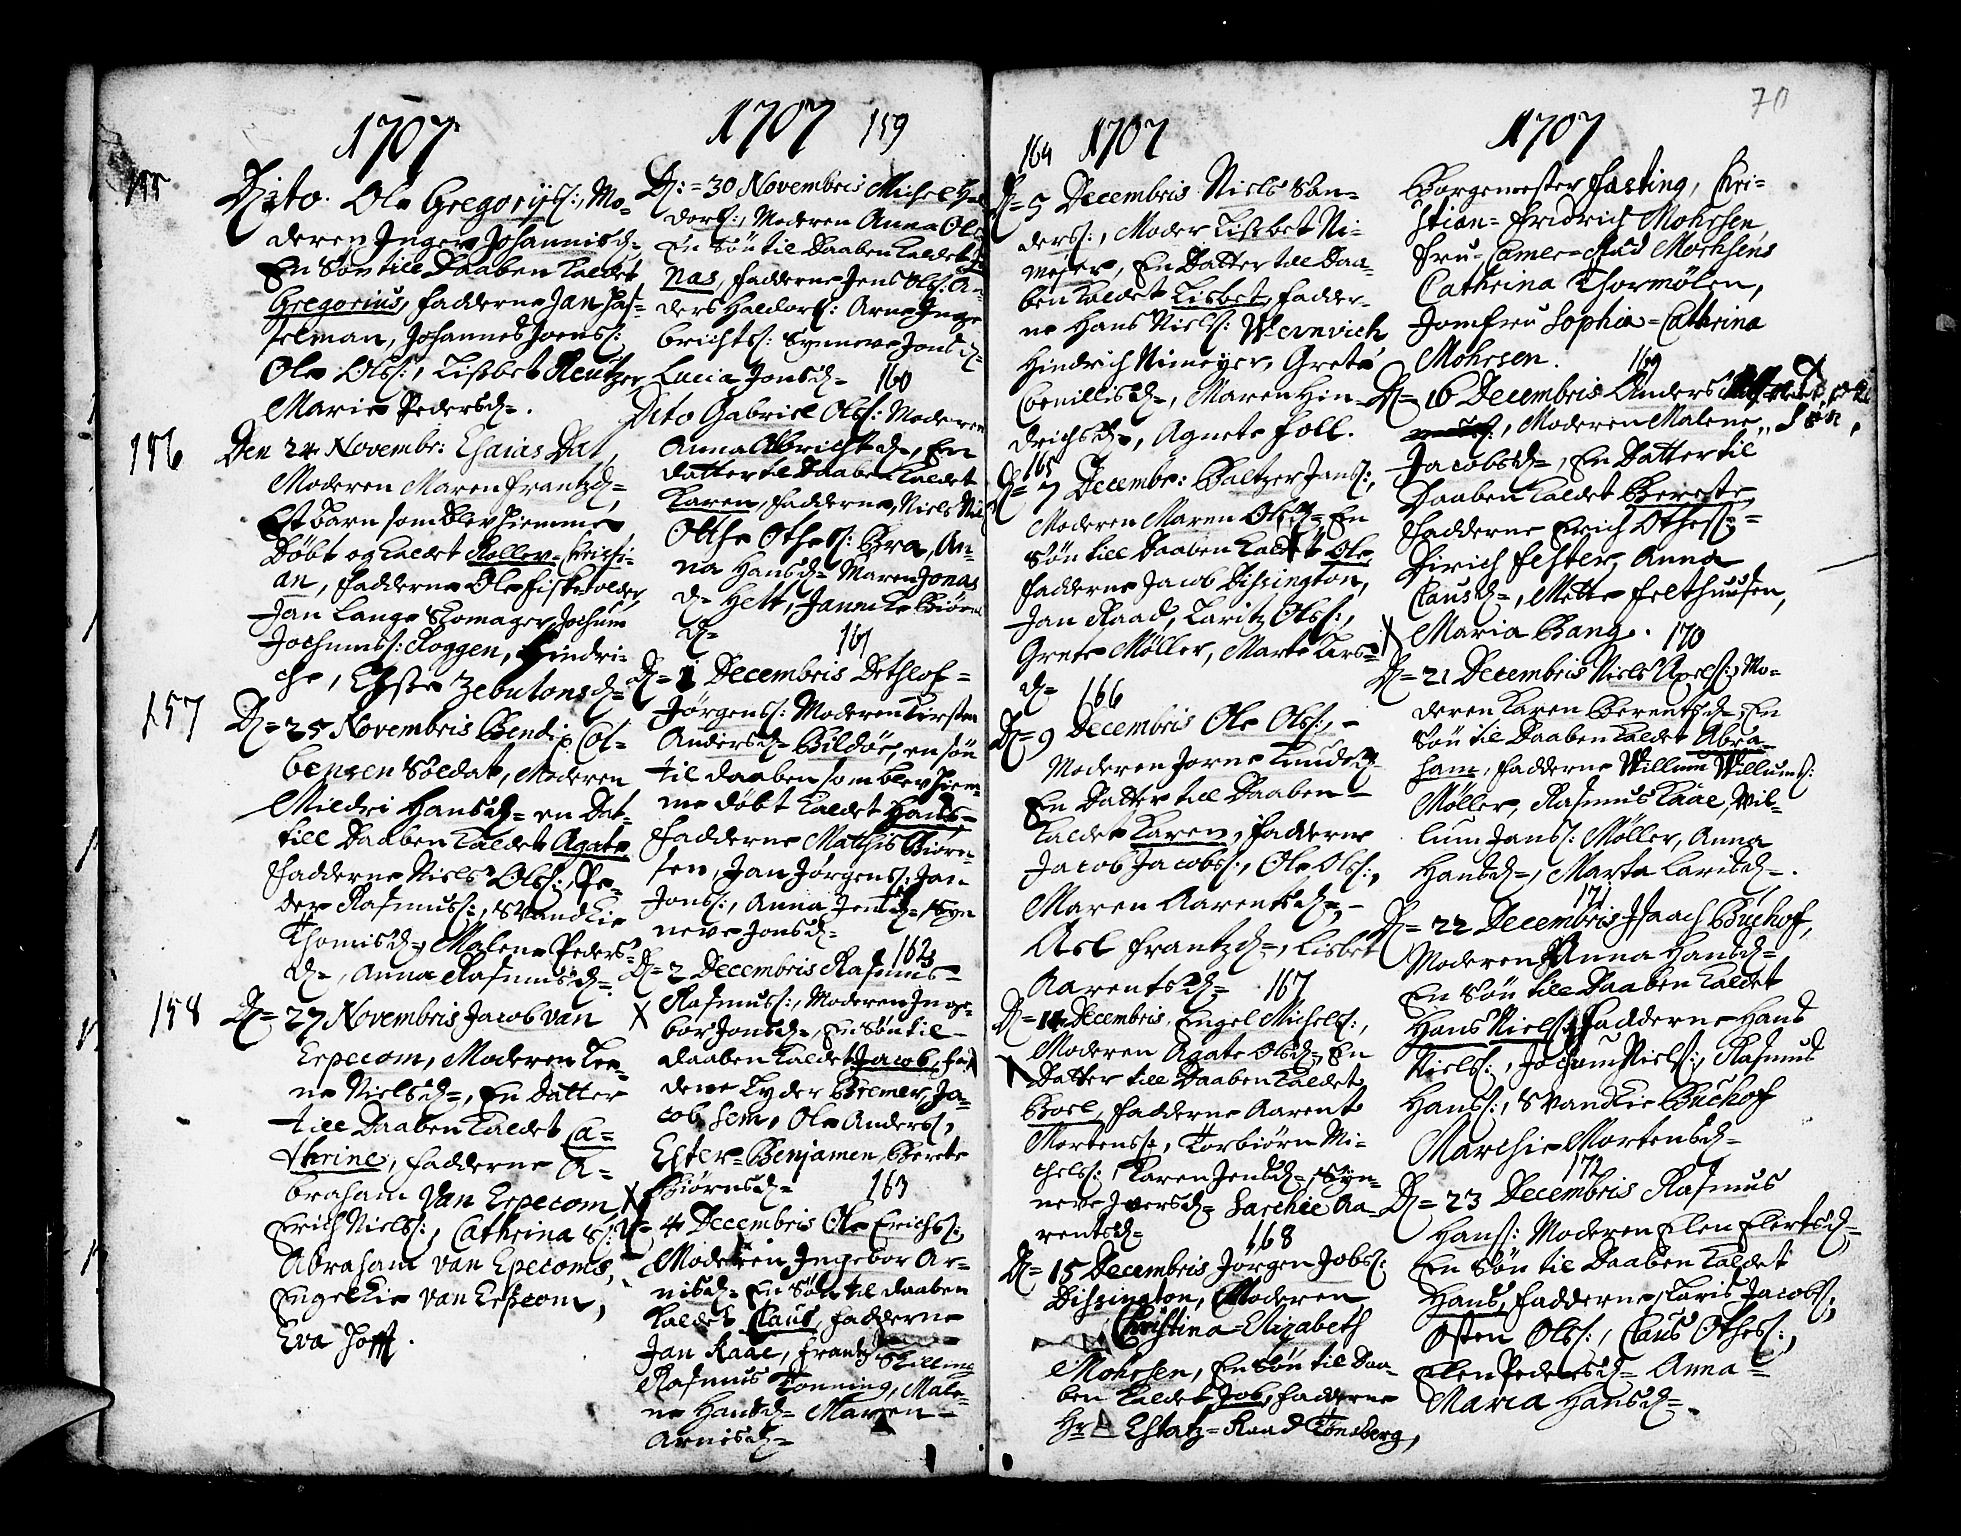 70
1707
155
Dito. Ole Gregorijs:, Mo-
deren Inger Johannisd=
En Søn till Daaben Kaldet
Gregorius, fadderne Jan Has-
selman, Johannes Joens:
Ole Ols:, Lisbet Reutzer,
Marie Pedersd=.
156
Den 24 Novembr: Esaias Dal,
Moderen Maren Frantzd=,
Et barn som blev hiemme
Døbt og Kaldet Roller-Christi-
an, fadderne Ole Fiskvolder,
Jan Lange Skomager, Jochum
Jochums: Roggen, Hindri-
che, Elsse Zebulonsd=
157
D= 25 Novembris Bendix Col-
bensen Soldat, Moderen
Mildri Hansd= en Dat-
till Daaben Kaldet Agate,
fadderne Niels Ols:, Pe-
der Rasmuss:, Svandkie
Thomisd=, Malene Peders-
d=, Anna Rasmusd=.
158
D= 27 Novembris Jacob van
Erpecom, Moderen Lee-
ne Nielsd=, En datter
till Daaben Kaldet Ca-
thrine, fadderne A-
braham Van Erpecom,
Erich Niels:, Cathrina S:
Abraham van Epecoms,
Engelkie van Erpecom,
Eva Hoff.
1707
159
D:= 30 Novembris Michel Hal
dors:, Moderen Anna Ols
En Søn til Daaben Kaldet Jo
nas, fadderne Jens Ols: An-
ders Haldors: Arne Inge
brichts: Synneve Jonsd=
Lucia Jonsd=
160
Dito Gabriel Ols: Moderen
Anna Albrichtsd=, En
datter til Daaben Kaldet
Karen, fadderne, Niels Nils
Otthe Othes: Bra, An-
na Hansd= Maren Jonas
d= Helt, Jannike Biørns
d=
161
D= 1 Decembris Dethlof=
Jørgens: Moderen Kirsten
Andersd= Bildøe, en søn
til daaben som blev hiem-
me døbt Kaldet Hans-
fadderne Matthis Biørn-
sen, Jan Jørgens: Jan
Jons:, Anna Jensd= Syn
neve Jonsd=
162
D= 2 Decembris Rasmus=
Rasmuss:, Moderen Inge-
bor Jonsd=, En Søn til-
daaben Kaldet Jacob, fa
derne Lyder Bremer, Ja-
cob Sem, Ole Anders:,
Ester=Benjamen, Berete
Biørnsd=
163
D= 4 Decembris Ole Erichs:
Moderen Ingebor Ar-
nisd= En Søn til daaben
Kaldet Claus, fadderne
Jan Kaae, Frantz Skilling
Rasmus Tønning, Male-
ne Hansd= Maren-
Arnisd=
164
1707
D= 5 Decembris Niels San-
ders:, Moder Lisbet Ni-
meyer, En Datter till Daa-
ben Kaldet Lisbet, fadder-
ne Hans Niels: Wernvich
Hindrich Nimeyer, Grete
Cornillisd=, Maren Hin-
drichsd=, Agnete Foll.
165
D= 7 Decembr: Baltzer Jans:,
Moderen Maren Olsd=, En
Søn till Daaben Kaldet Ole
fadderne Jacob Dissington,
Jan Raad, Laritz Ols:,
Grete Møller, Marte Lars-
d=
166
D= 9 Decembris Ole Ols:, -
Moderen Jorne Knudsd=
En Datter till Daaben-
Kaldet Karen, fadderne
Jacob Jacobs:, Ole Ols:,
Maren Aarentsd=, -
Acl Frantzd=, Lisbet
Aarentsd=
167
D= 14 Decembris, Engel Michels:,
Moderen Agate Olsd=, En
Datter till Daaben Kaldet
Boel, fadderne Aarent
Mortens:, Torbiørn Mi-
chels:, Karen Jensd=, Syn-
neve Iversd= Sarchie Aa-
rentsd=
168
D= 15 Decembris Jørgen Jobs:
Dissington, Moderen
Christina=Elizabeth
Mohrsen, En Søn til Daa-
ben Kaldet Job, fadderne
Hr Estatz=Raad Tønsberg,
1707
Borgemester Fasting, Chri-
stian=Fridrich Mohrsen,
Fru=Camer=Raad Mohrsens
Cathrina Thormølen,
Jomfru Sophia=Cathrina
Mohrsen.
169
D= 16 Decembris Anders
Moderen Malene
Jacobsd=, En Datter til
Daaben Kaldet Berete,
fadderne Erich Othes:=
Dirich Elster, Anna
Clausd=, Mette Felthuusen,
Maria Bang.
170
D= 21 Decembris Niels Axels:, Mo-
deren Karen Berentsd=, En
Søn til Daaben Kaldet Abra-
ham, fadderne Willum Willums:
Møller, Rasmus Kaae, Wil-
lum Jans: Møller, Anna
Hansd=, Marta Larisd=.
171
D= 22 Decembris Isaach Buchof,
Moderen Anna Hansd=
En Søn till Daaben Kaldet
Hans Niels: fadderne Hans
Niels:, Jochum Niels:, Rasmus
Hans:, Svandkie Buchof
Marchie Mortensd=
172
D= 23 Decembris Rasmus
Hans: Moderen Elen Elertsd=
En Søn til Daaben Kaldet
Hans, fadderne, Laris Jacobs:,
Osten Ols:, Claus Othes:,
Elen Pedersd= Anna=
Maria Hansd=.